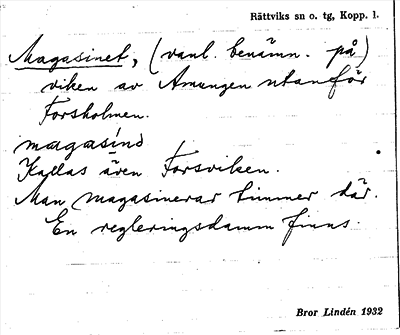 Rättviks sn o. tg, Kopp. l.
Magasinet, (vanl. benämn. på)
viken av Amungen utanför
Forsholmen.
magasínd
Kallas även Forsviken.
Man magasinerar timmer där.
En regleringsdamm finns.
Bror Lindén 1932